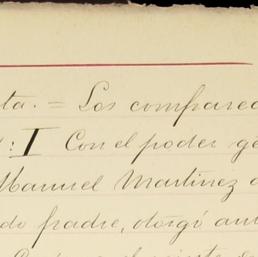 ta. = Los compared
: I Con el poder ge
Manuel Martinez d
do padre, otorgó ant